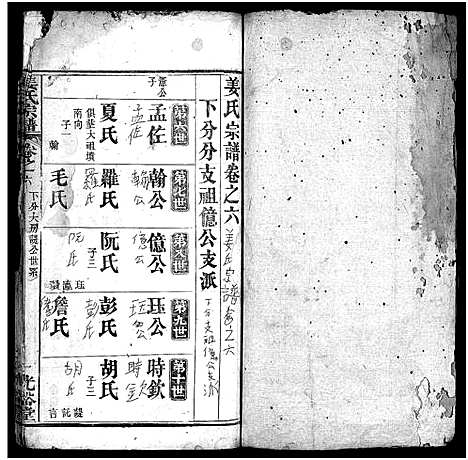 姜氏宗譜卷之六
姜氏宗譜卷之六
下分分支祖億公支派
下分支祖億公支派
第六世
孟佐
孟佐
夏氏
俱塟大祖墳
南向
子
翰
第七世
翰公
翰公
羅氏
羅氏
毛氏
第八世
億公
億公
阮氏
子三
阮氏
珏
第九世
珏公
珏公
彭氏
彭氏
詹氏
第十世
時欽
時欽
胡氏
子三
胡氏
託
言
姜氏宗譜
卷之六
下分大房
公世系
光裕堂